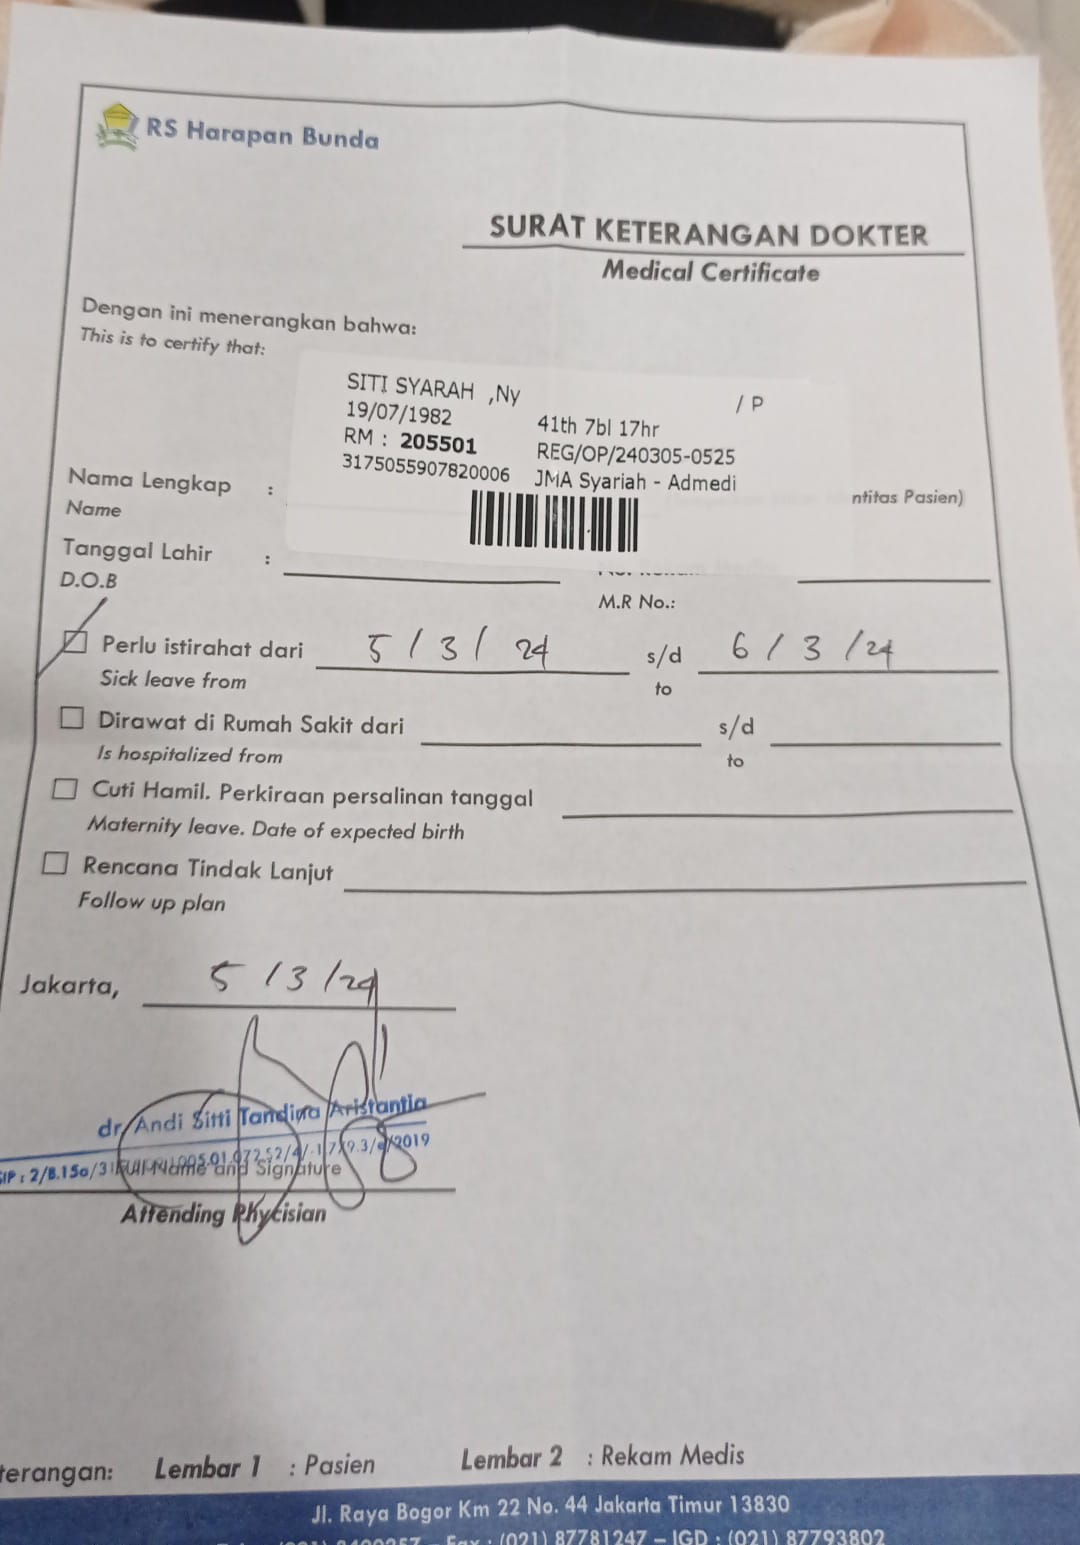 RS Harapan Bunda
SURAT KETERANGAN DOKTER
Medical Certificate
Dengan ini menerangkan bahwa:
This is to certify that:
SITI SYARAH ,Ny / P
19/07/1982 41th 7bl 17hr
RM : 205501 REG/OP/240305-0525
3175055907820006 JMA Syariah - Admedi
Nama Lengkap : ntitas Pasien)
Name
Tanggal Lahir :
D.O.B M.R No.:
Perlu istirahat dari 5/3/24 s/d 6/3/24
Sick leave from to
Dirawat di Rumah Sakit dari s/d
Is hospitalized from to
Cuti Hamil. Perkiraan persalinan tanggal
Maternity leave. Date of expected birth
Rencana Tindak Lanjut
Follow up plan
Jakarta, 5/3/24
dr. Andi Sitti Tandira Aristantia
Name and Signature
Attending Phycisian
terangan: Lembar 1 : Pasien Lembar 2 : Rekam Medis
Jl. Raya Bogor Km 22 No. 44 Jakarta Timur 13830
Fax : (021) 87781247 – IGD : (021) 87793802